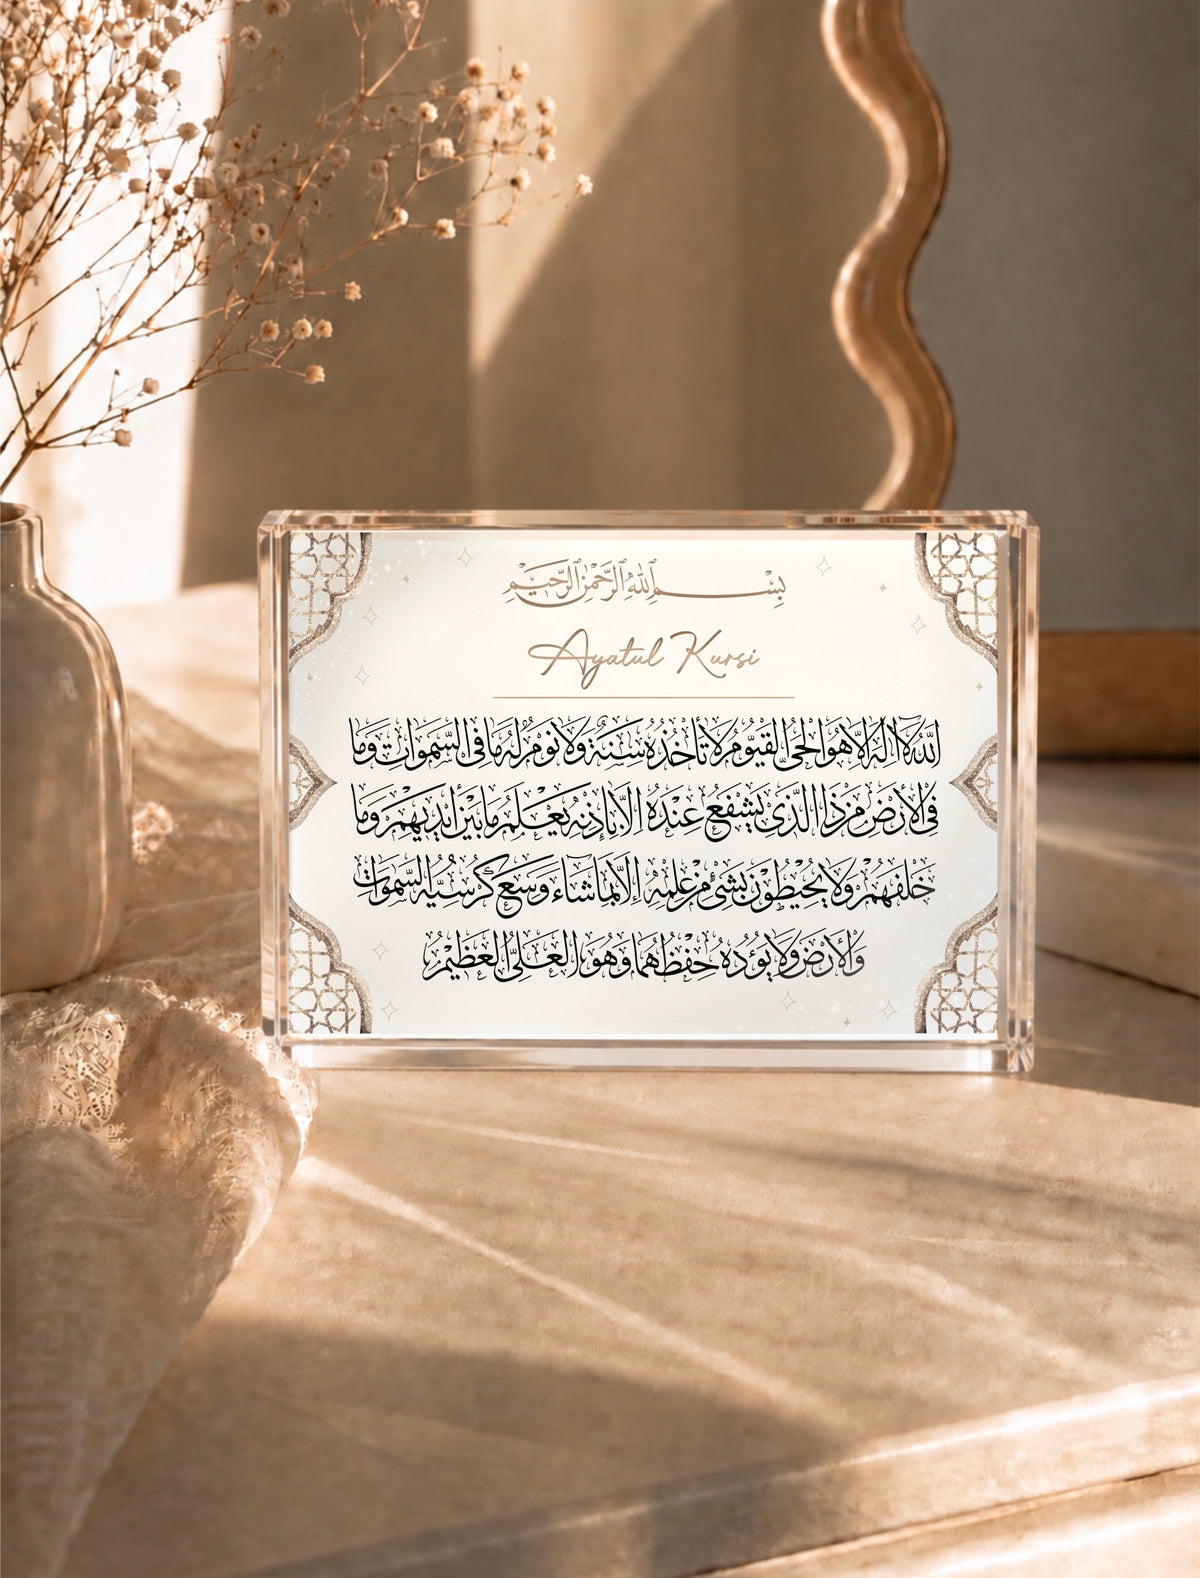 بِسْمِ اللهِ الرَّحْمٰنِ الرَّحِيْمِ
Ayatul Kursi
اَللّٰهُ لَا اِلٰهَ اِلَّا هُوَ الْحَىُّ الْقَيُّوْمُ لَا تَأْخُذُهٗ سِنَةٌ وَلَا نَوْمٌ لَهٗ مَا فِى السَّمٰوَاتِ وَمَا
فِى الْاَرْضِ مَنْ ذَا الَّذِىْ يَشْفَعُ عِنْدَهٗ اِلَّا بِاِذْنِهٖ يَعْلَمُ مَا بَيْنَ اَيْدِيْهِمْ وَمَا
خَلْفَهُمْ وَلَا يُحِيْطُوْنَ بِشَىْءٍ مِنْ عِلْمِهٖ اِلَّا بِمَا شَاءَ وَسِعَ كُرْسِيُّهُ السَّمٰوَاتِ
وَالْاَرْضَ وَلَا يَؤُدُهٗ حِفْظُهُمَا وَهُوَ الْعَلِىُّ الْعَظِيْمُ